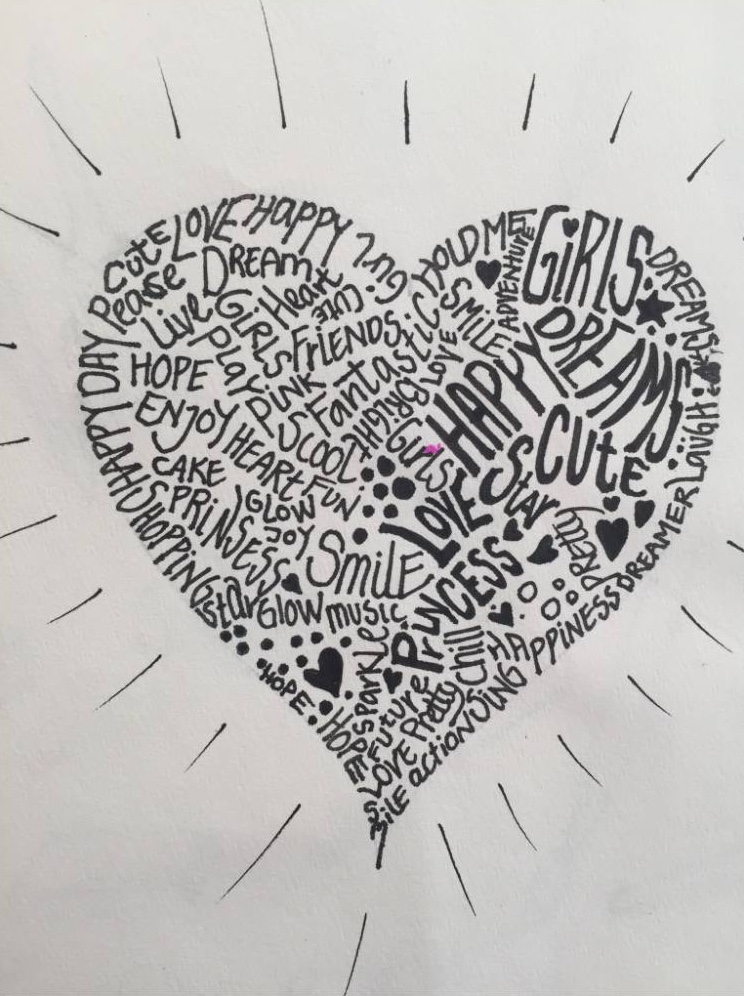 LOVE
HAPPY
CUTE
Pease
DREAM
Heart
CUTE
Live
GIRLS
FRIENDS
Play
HOPE
PINK
Fantastic
BRIGHT
HAPPYDAY
ENJOY
HEART
SCOOL
Girls
CAKE
FUN
GLOW
SPRINSESS
JOY
SHOPPING
SmiLE
star
GLOW
music
HOPE
HOPE
sparkle
FUTURE
LOVE
SmiLE
HOLD ME
ADVENTURE
GiRLS
DREAMS
SMILE
LOVE
DREAMS
HAPPY
CUtE
LAUGH
Star
LOVE
PRETTY
DREAMER
PRINCESS
Chill
HAPPINESS
Pretty
SING
action